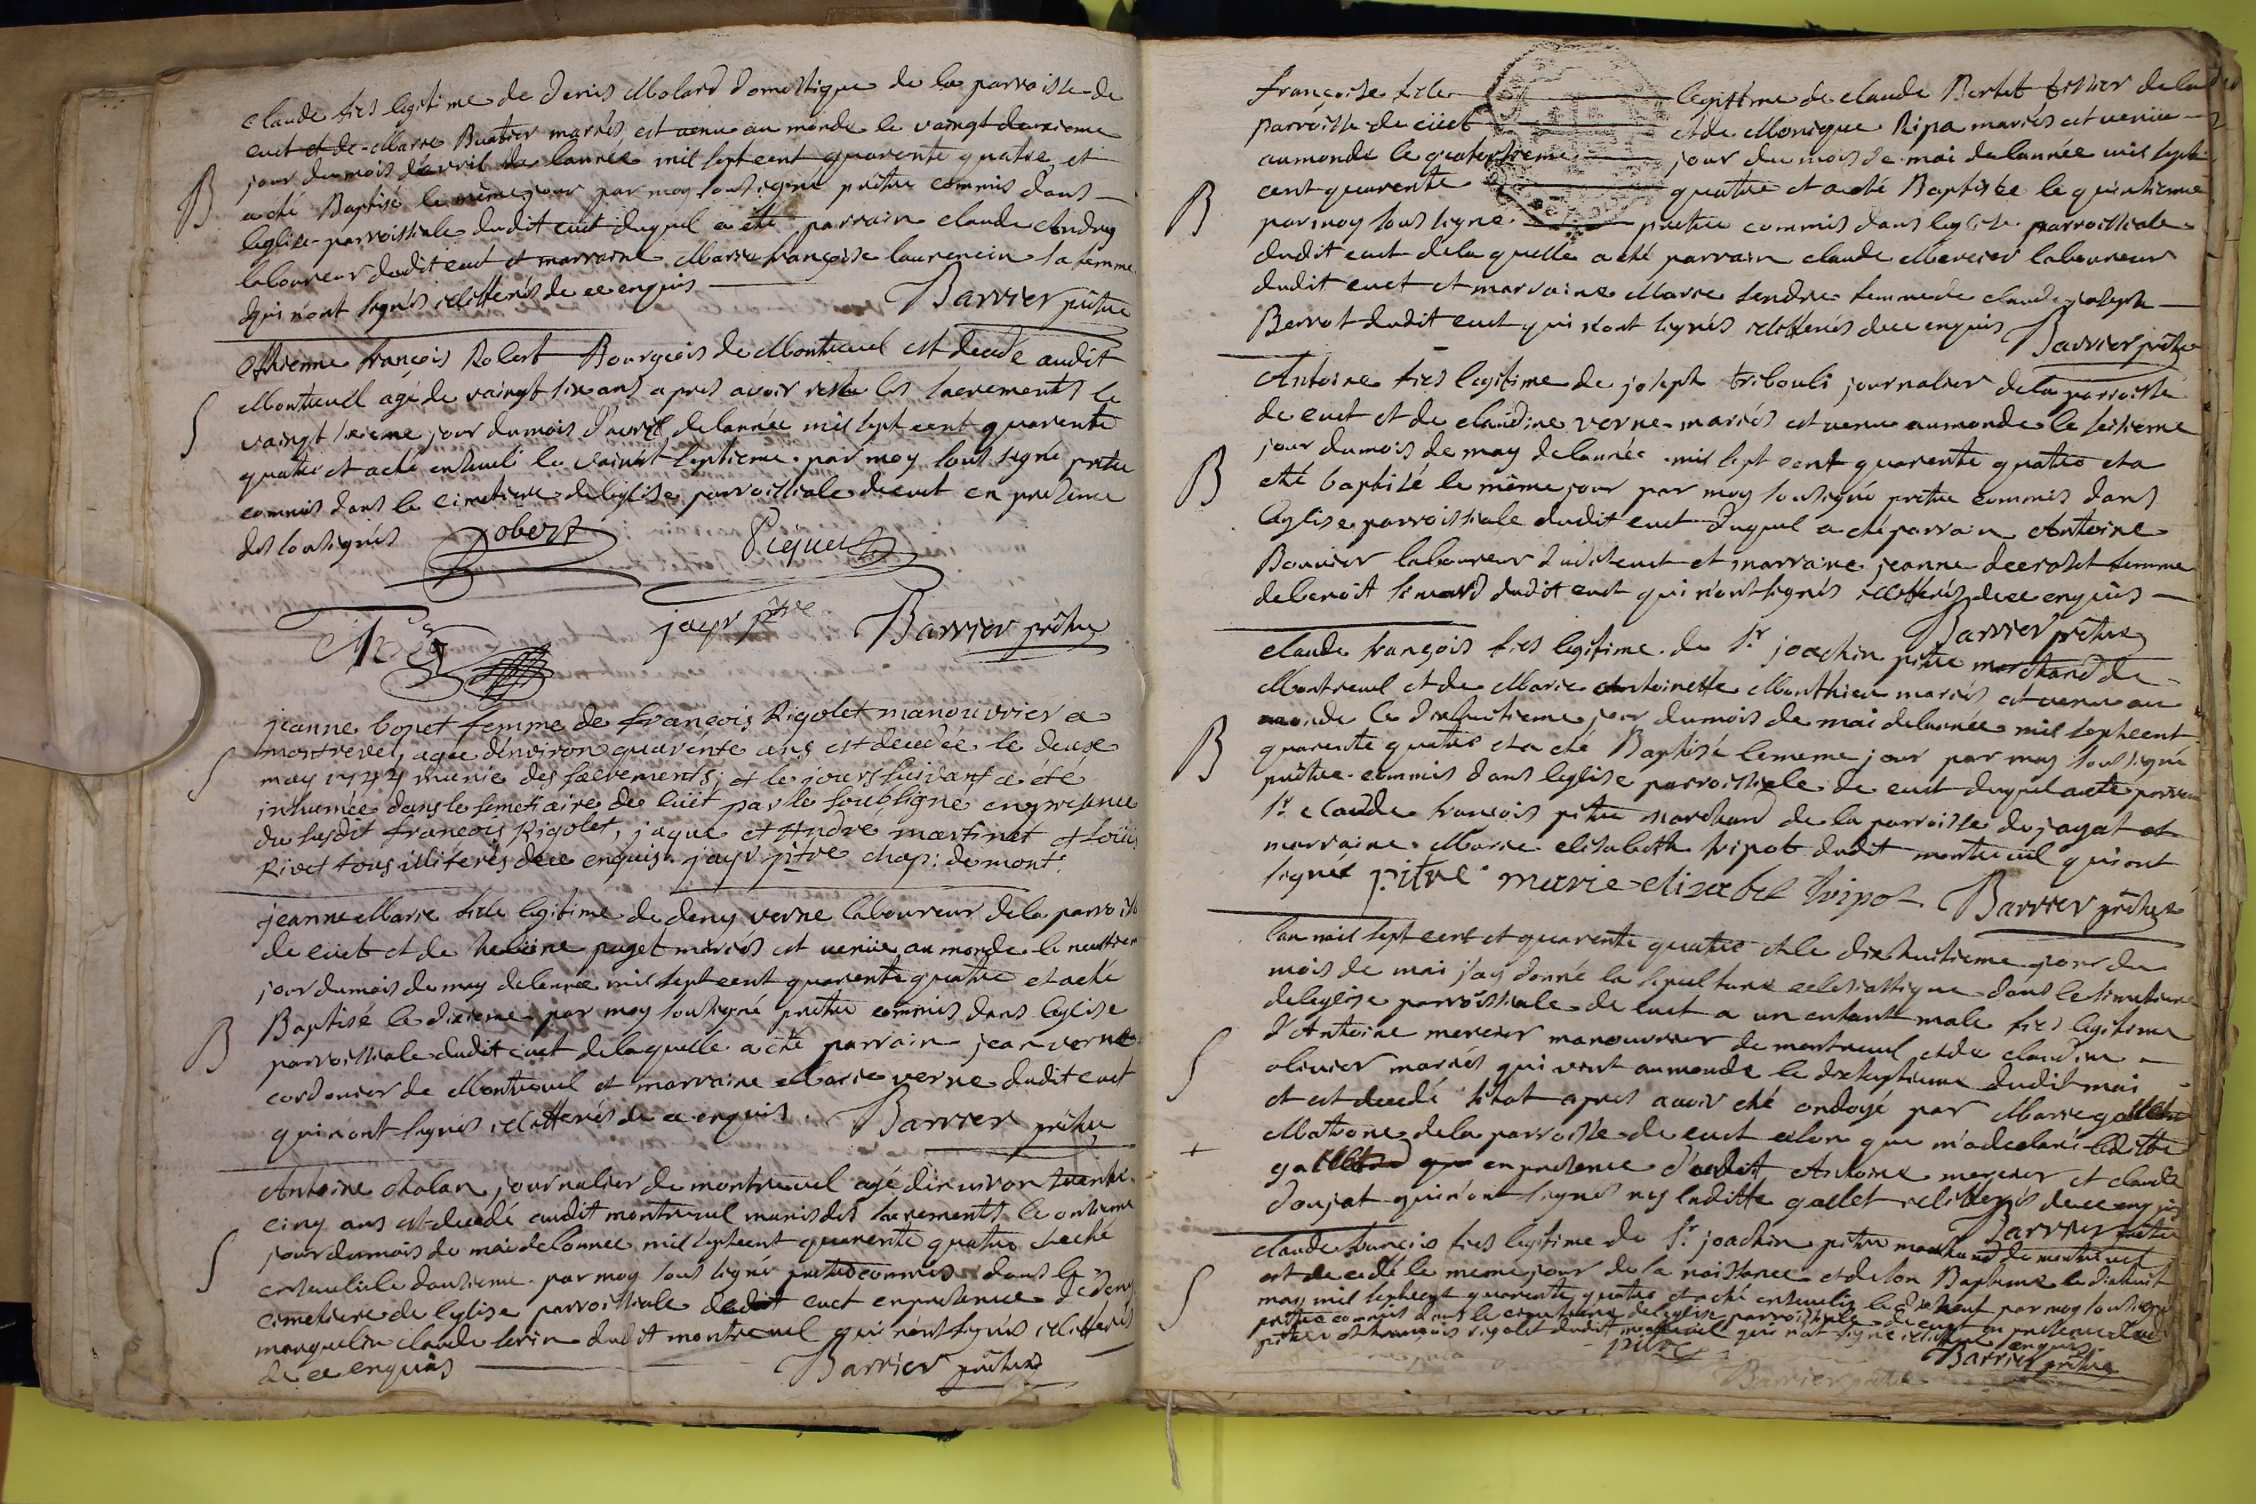 claude fils legitime de denis Molard domestique de la parroisse de
cuet et de Marie Buatier mariés est venu au monde le vaingt deuxieme
jour du mois d'avril de lannée mil sept cent quarente quatre et
B
a été Baptisé le même jour par moy sousigné prêtre commis dans
leglise parroissiale dudit cuet duquel a été parrain claude Andrey
laboureur dudit cuet et marraine Marie françoise laurencin sa femme
qui n'ont signés illitterés de ce enquis
Barrier prêtre
Ettienne françois Robert Bourgeois de Montreuil est decedé audit
Montreuil agé de vaingt six ans apres avoir resu les sacrements le
S
vaingt sixieme jour du mois d'avril de lannée mil sept cent quarente
quatre et a eté enseveli le vaingt septieme par moy sous signé prêtre
commis dans le cimetiere de leglise parroissiale de cuet en presence
des sousignés Robert Piquet
jayr ptre Barrier prêtre
jeanne bonet femme de françois Rigolet manouvrier a
montrevel, agée d'environ quarénte ans est decedée le deuse
S
may 1744 munie des sacrements; et le jour suivant a été
inhumée dans le simetiaire de cüet par le soubsigné en presence
du susdit françois Rigolet, jaque et André martinet et loüis
Rivet tous illiterés de ce enquis. jayr ptre chap: de mont:
jeanne Marie fille legitime de deny verne laboureur de la parroisse
de cuet et de heleine puget mariés est venüe au monde le neuvieme
jour du mois de may de lannée mil sept cent quarente quatre et a eté
Baptisé le dixieme par moy sousigné prêtre commis dans leglise
B
parroissiale dudit cuet de laquelle a eté parrain jean verne
cordonier de Montreuil et marraine Marie verne dudit cuet
qui n'ont signés illitterés de ce enquis. Barrier prêtre
Antoine chalan journalier de montreuil agé d'environ trente
cinq ans est decedé audit montreuil munis des sacrements le onzieme
S
jour du mois de mai de lannee mil septcent quarente quatre et a eté
enseveli le douzieme par moy sous signé prêtre commis dans le
cimetiere de leglise parroissiale dudit cuet en presence de deny
manguelin claude serin dudit montreuil qui n'ont signés illitterés
de ce enquis
Barrier prêtre
françoise fille legitime de claude Bertet tissier de la
parroisse de cüet et de Monique Ripa mariés est venüe
au monde le quatorzieme jour du mois de mai de lannée mil sept
cent quarente quatre et a eté Baptisée le quinzieme
B
par moy sous signé prêtre commis dans leglise parroissiale
dudit cuet de laquelle a eté parrain claude Mercier laboureur
dudit cuet et marraine Marie fendre femme de claude joseph
Berrot dudit cuet qui n'ont signés illitterés de ce enquis Barrier prêtre
Antoine fils legitime de joseph tribouli journalier de la parroisse
de cuet et de claudine verne mariés est venu au monde le seizieme
jour du mois de may de lannée mil sept cent quarente quatre et a
B
eté baptisé le même jour par moy sousigné prêtre commis dans
leglise parroissiale dudit cuet duquel a eté parrain Antoine
Bouvier laboureur dudit cuet et marraine jeanne decroset femme
de benoit simard dudit cuet qui n'ont signés illitterés de ce enquis
Barrier prêtre
claude françois fils legitime de Sr joachin pitre marchand de
Montreuil et de Marie Antoinette Monthieu mariés est venu au
monde le dixhuitieme jour du mois de mai de lannee mil sept cent
B
quarente quatre et a eté Baptisé le meme jour par moy sousigné
prêtre commis dans leglise parroissiale de cuet duquel a eté parrain
Sr claude françois pitre marchand de la parroisse de jayat et
marraine Marie elisabeth tripot dudit montreuil qui ont
signés pitre marie elizabet tripot Barrier prêtre
lan mil sept cent et quarente quatre et le dixhuitieme jour du
mois de mai j'ay donné la sepulture eclesiastique dans le simetiere
de leglise parroissiale de cuet a un enfant male fils legitime
d'Antoine mercier manouvrier de montreuil et de claudine
S
olivier mariés qui vint au monde le dixseptieme dudit mai
et est decedé sitot apres avoir eté ondoyé par Marie gallet
Matrone de la parroisse de cuet selon que m'a declaré laditte
+
gallet en presence dudit Antoine mercier et claude
doujat qui n'ont signés ny laditte gallet illitterés de ce enquis
Barrier prêtre
claude françois fils legitime de Sr joachin pitre marchand de montreuil
est decedé le meme jour de sa naissance et de son Baptême le dixhuit
S
may mil septcent quarente quatre et a eté enseveli le par moy sousigné
prêtre commis dans le cimetiere de leglise parroissiale de cuet en presence dudit
pitre et françois rigolet dudit montreuil qui n'at signé illittere enquis
pitre Barrier prêtre